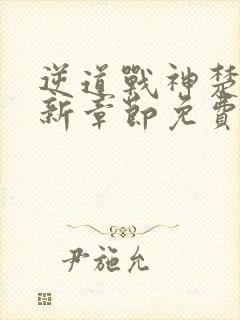 逆道戰神楚
新章節免費
尹施允